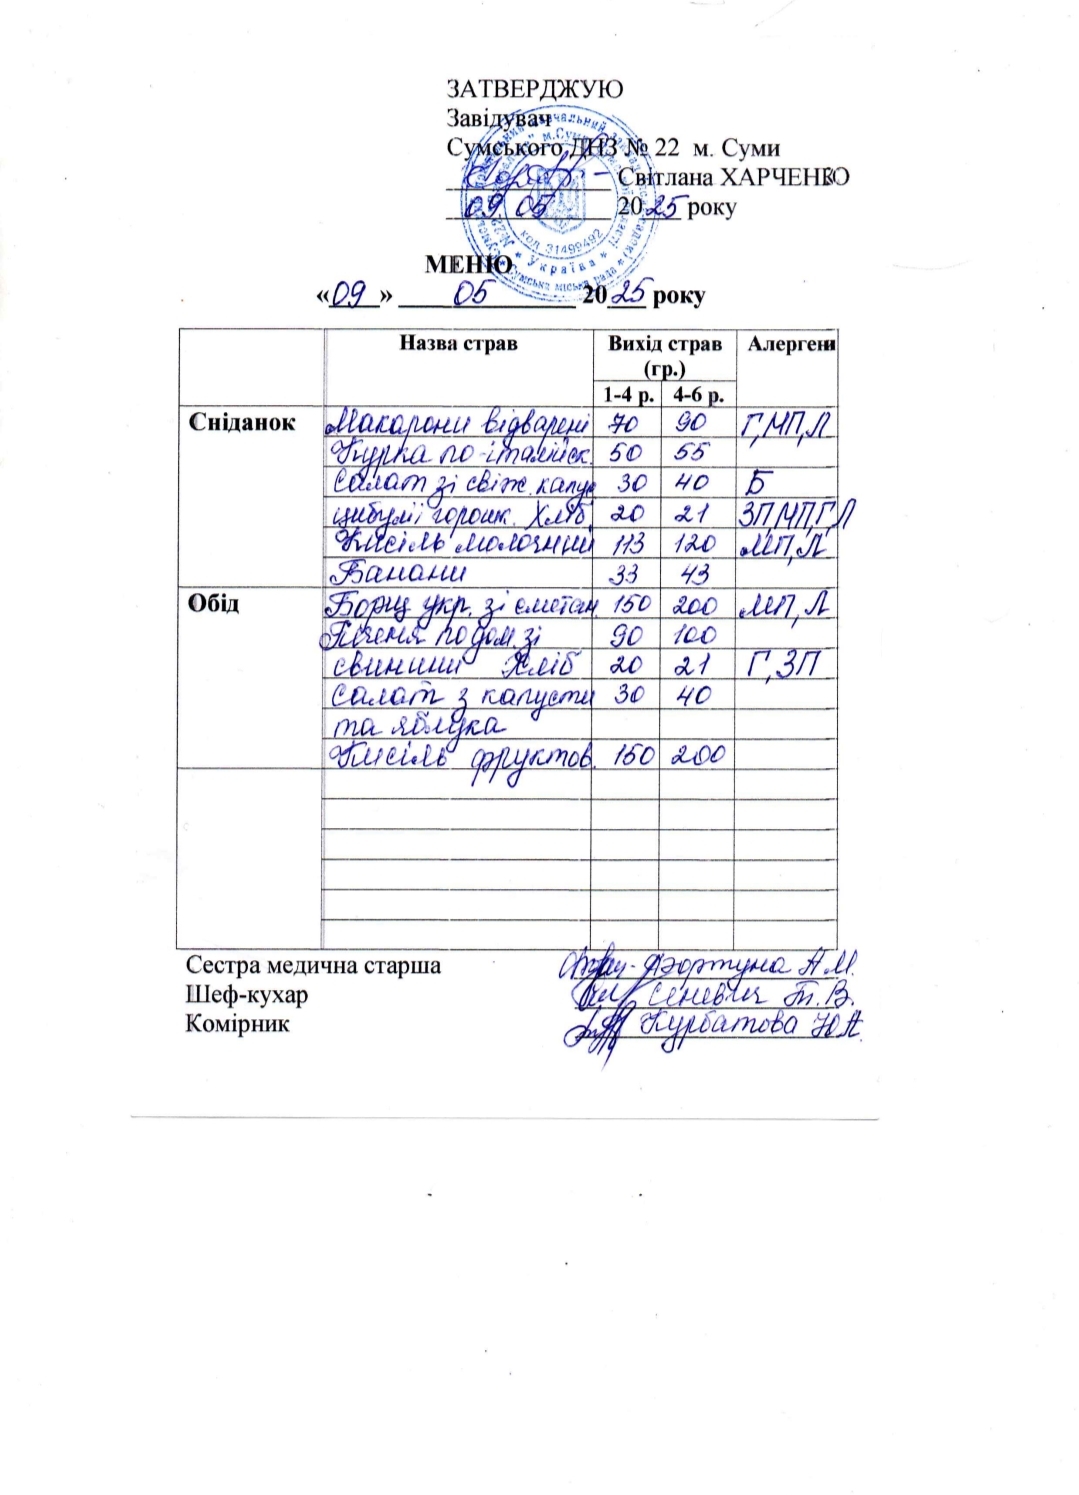 ЗАТВЕРДЖУЮ
Завідувач
Сумського ДНЗ № 22 м. Суми
Світлана ХАРЧЕНКО
09. 05 2025 року
код 31499492
Україна
МЕНЮ
«09» 05 2025 року
Назва страв Вихід страв (гр.) Алергени
1-4 р. 4-6 р.
Сніданок Макарони відварені 70 90 Г,МП,Л
Курка по-італійск. 50 55
Салат зі свіж. капус 30 40 Б
цибулі, горошк. Хліб. 20 21 ЗП,МП,Г,Л
Кисіль молочний 113 120 МП,Л
Банани 33 43
Обід Борщ укр. зі сметан. 150 200 МП,Л
Печеня по дом. зі 90 100
свинини Хліб 20 21 Г,ЗП
Салат з капусти 30 40
та яблука
Кисіль фруктов. 150 200
Сестра медична старша Фортуна А.М.
Шеф-кухар Сеневич Т.В.
Комірник Курбатова Ю.А.